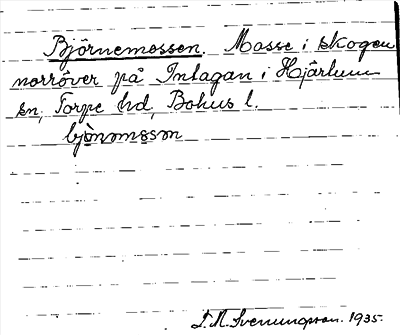 Björnemossen. Mosse i skogen
norröver på Inlagan i Hjärtum
sn, Torpe hd, Bohus l.
bjònnmòsɔn
F. M. Svenungsson. 1935.